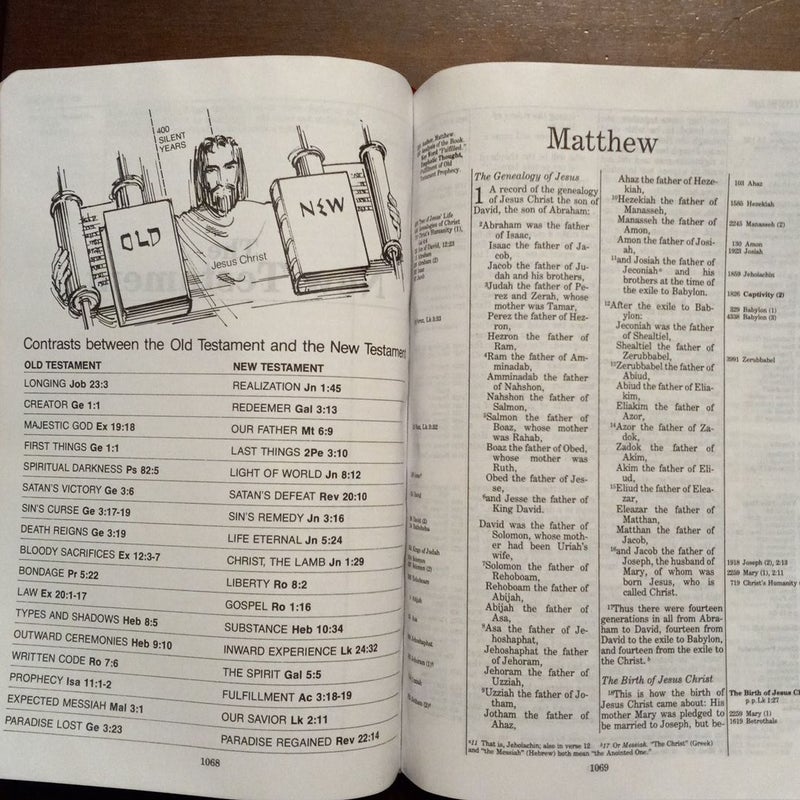 400
SILENT
YEARS
OLD
NEW
Jesus Christ
Contrasts between the Old Testament and the New Testament
OLD TESTAMENT NEW TESTAMENT
LONGING Job 23:3 REALIZATION Jn 1:45
CREATOR Ge 1:1 REDEEMER Gal 3:13
MAJESTIC GOD Ex 19:18 OUR FATHER Mt 6:9
FIRST THINGS Ge 1:1 LAST THINGS 2Pe 3:10
SPIRITUAL DARKNESS Ps 82:5 LIGHT OF WORLD Jn 8:12
SATAN'S VICTORY Ge 3:6 SATAN'S DEFEAT Rev 20:10
SIN'S CURSE Ge 3:17-19 SIN'S REMEDY Jn 3:16
DEATH REIGNS Ge 3:19 LIFE ETERNAL Jn 5:24
BLOODY SACRIFICES Ex 12:3-7 CHRIST, THE LAMB Jn 1:29
BONDAGE Pr 5:22 LIBERTY Ro 8:2
LAW Ex 20:1-17 GOSPEL Ro 1:16
TYPES AND SHADOWS Heb 8:5 SUBSTANCE Heb 10:34
OUTWARD CEREMONIES Heb 9:10 INWARD EXPERIENCE Lk 24:32
WRITTEN CODE Ro 7:6 THE SPIRIT Gal 5:5
PROPHECY Isa 11:1-2 FULFILLMENT Ac 3:18-19
EXPECTED MESSIAH Mal 3:1 OUR SAVIOR Lk 2:11
PARADISE LOST Ge 3:23 PARADISE REGAINED Rev 22:14
1068
Matthew
The Genealogy of Jesus
1 A record of the genealogy
of Jesus Christ the son of
David, the son of Abraham:
2Abraham was the father
of Isaac,
Isaac the father of Ja-
cob,
Jacob the father of Ju-
dah and his brothers,
3Judah the father of Pe-
rez and Zerah, whose
mother was Tamar,
Perez the father of Hez-
ron,
Hezron the father of
Ram,
4Ram the father of Am-
minadab,
Amminadab the father
of Nahshon,
Nahshon the father of
Salmon,
5Salmon the father of
Boaz, whose mother
was Rahab,
Boaz the father of Obed,
whose mother was
Ruth,
Obed the father of Jes-
se,
6and Jesse the father of
King David.
David was the father of
Solomon, whose moth-
er had been Uriah's
wife,
7Solomon the father of
Rehoboam,
Rehoboam the father of
Abijah,
Abijah the father of
Asa,
8Asa the father of Je-
hoshaphat,
Jehoshaphat the father
of Jehoram,
Jehoram the father of
Uzziah,
9Uzziah the father of Jo-
tham,
Jotham the father of
Ahaz,
Ahaz the father of Heze-
kiah,
10Hezekiah the father of
Manasseh,
Manasseh the father of
Amon,
Amon the father of Josi-
ah,
11and Josiah the father of
Jeconiah a and his
brothers at the time of
the exile to Babylon.
12After the exile to Bab-
ylon:
Jeconiah was the father
of Shealtiel,
Shealtiel the father of
Zerubbabel,
13Zerubbabel the father of
Abiud,
Abiud the father of Elia-
kim,
Eliakim the father of
Azor,
14Azor the father of Za-
dok,
Zadok the father of
Akim,
Akim the father of Eli-
ud,
15Eliud the father of Elea-
zar,
Eleazar the father of
Matthan,
Matthan the father of
Jacob,
16and Jacob the father of
Joseph, the husband of
Mary, of whom was
born Jesus, who is
called Christ.
17Thus there were fourteen
generations in all from Abra-
ham to David, fourteen from
David to the exile to Babylon,
and fourteen from the exile to
the Christ. b
The Birth of Jesus Christ
18This is how the birth of
Jesus Christ came about: His
mother Mary was pledged to
be married to Joseph, but be-
103 Ahaz
1585 Hezekiah
2245 Manasseh (2)
130 Amon
1923 Josiah
1859 Jehoiachin
1826 Captivity (2)
329 Babylon (1)
4338 Babylon (3)
3991 Zerubbabel
1918 Joseph (2), 2:13
2259 Mary (1), 2:11
719 Christ's Humanity
The Birth of Jesus
p p.Lk 1:27
2259 Mary (1)
1619 Betrothals
a 11 That is, Jehoiachin; also in verse 12 b 17 Or Messiah. "The Christ" (Greek)
and "the Messiah" (Hebrew) both mean "the Anointed One."
1069